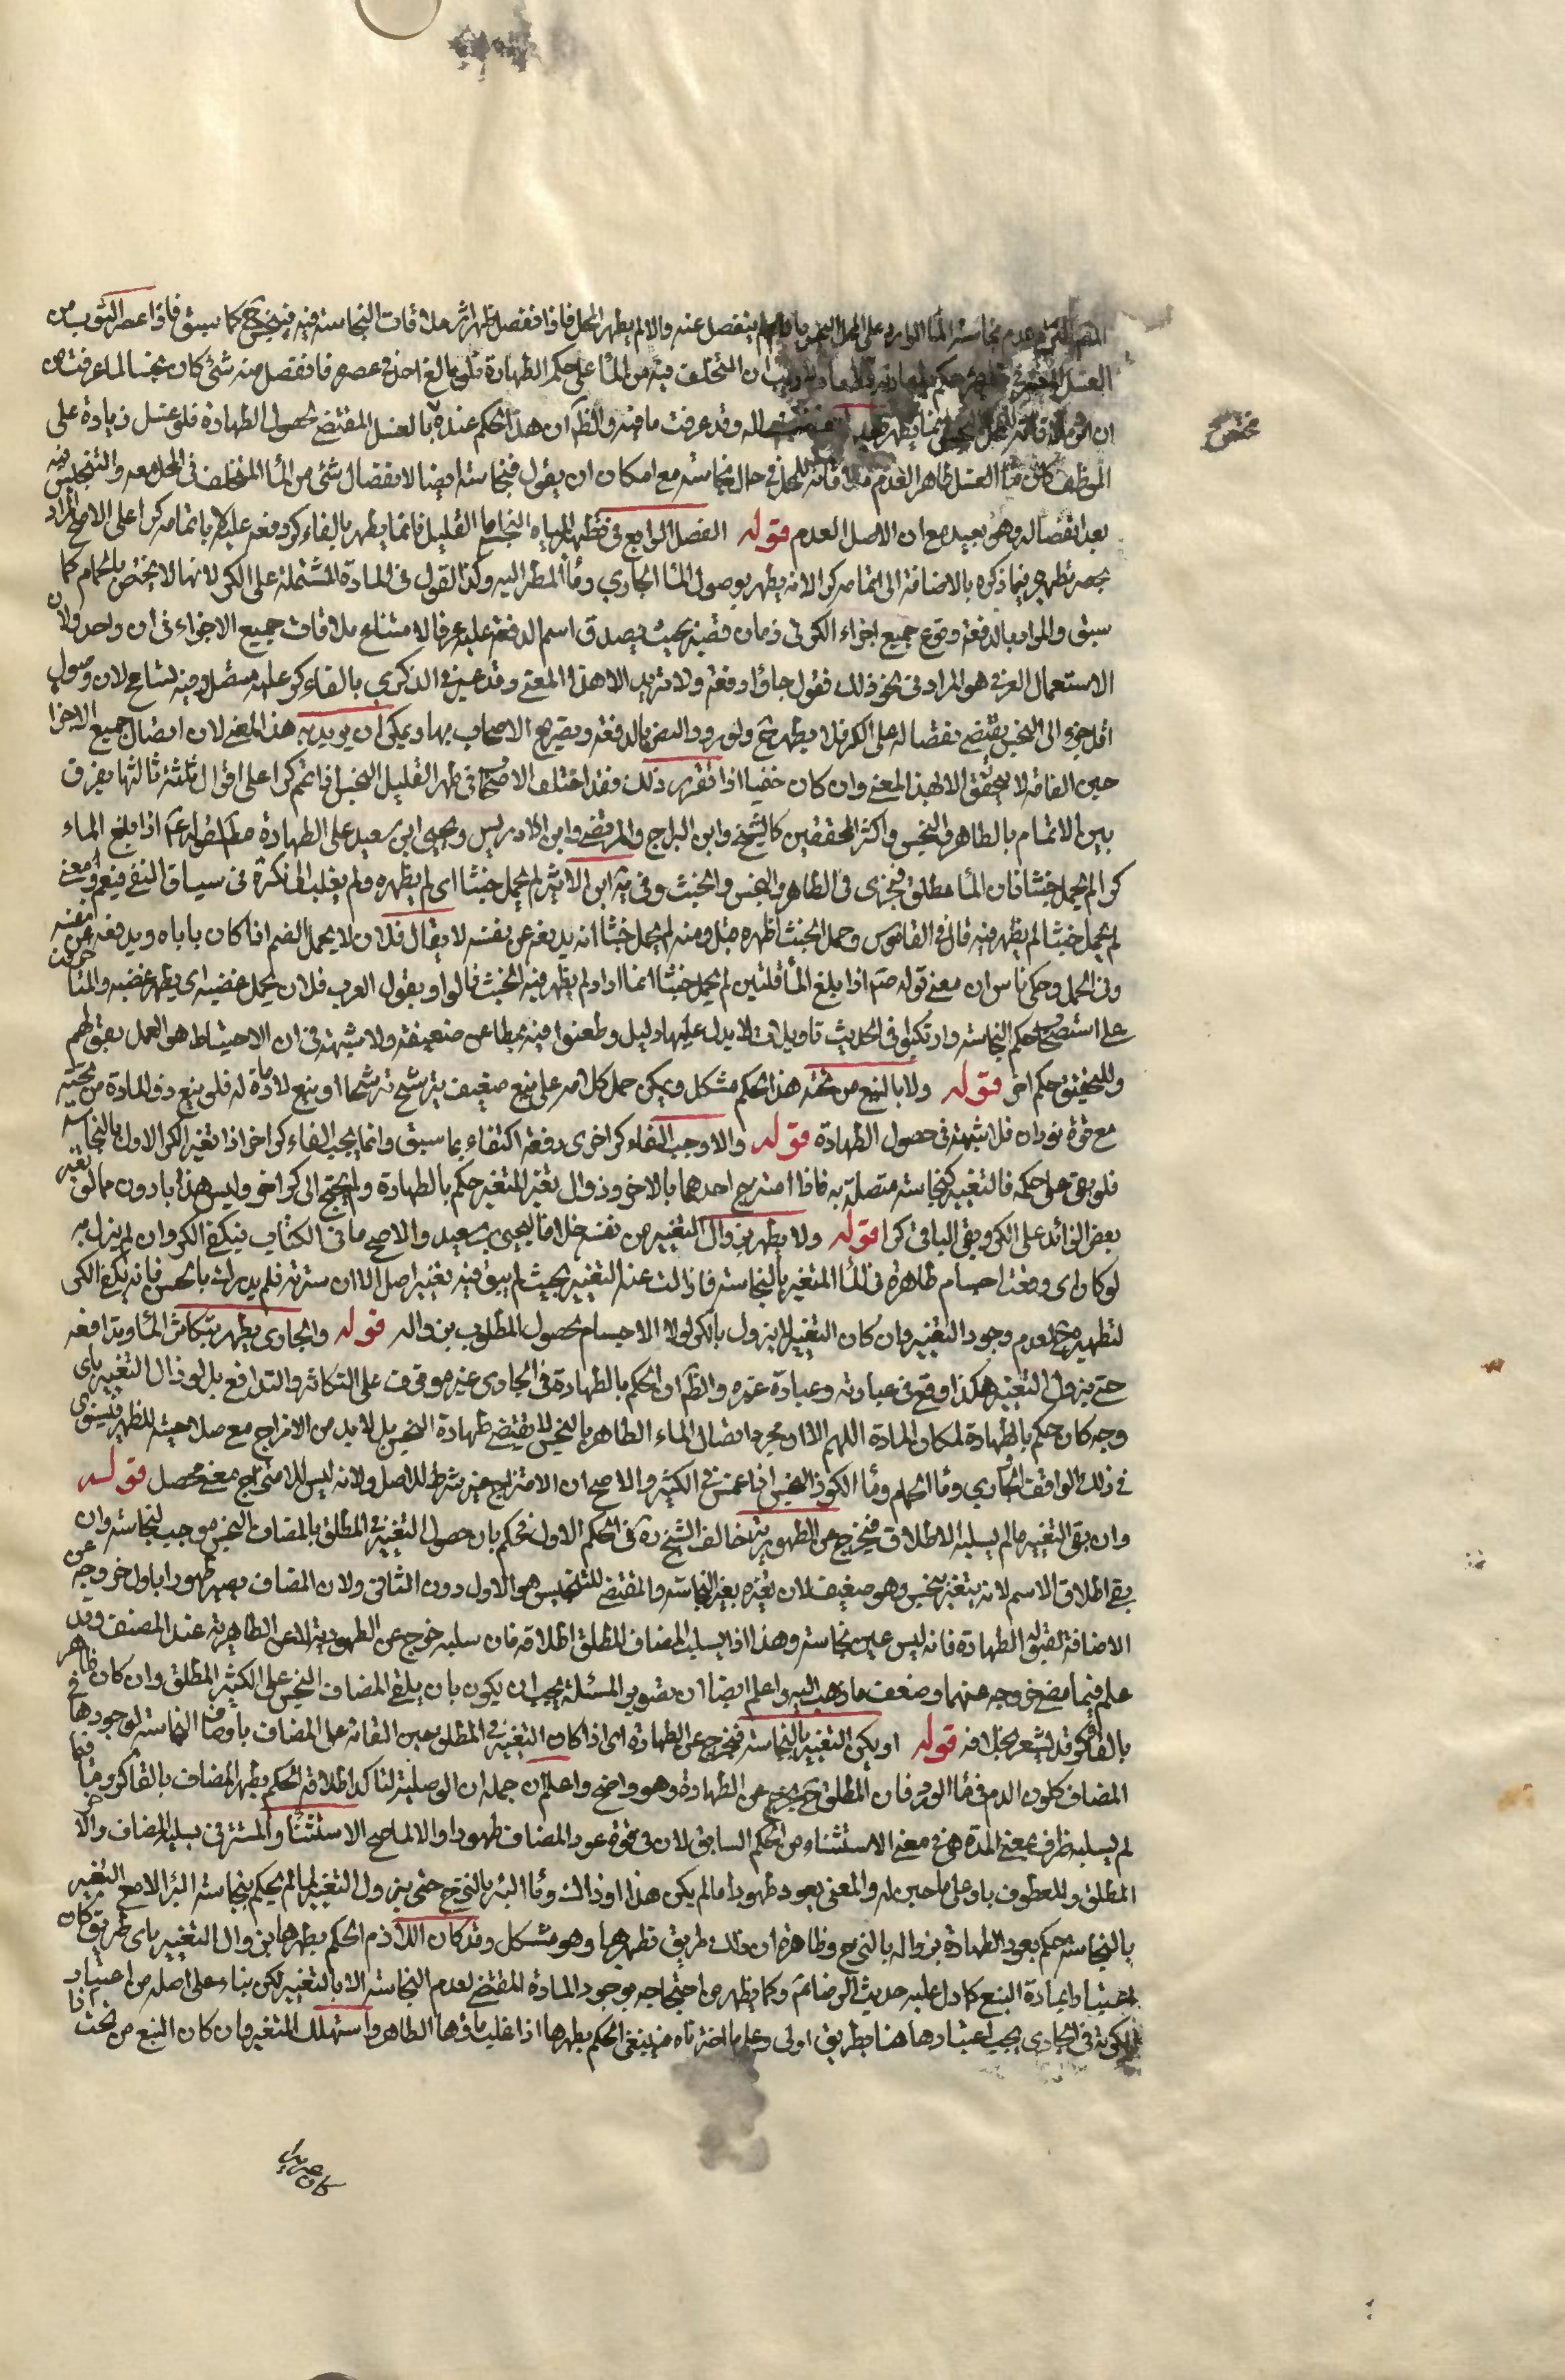 عدم نجاسة الماء الوارد على المحل النجس ما لم ينفصل عنه والا لم يطهر المحل فاذا انفصل ظهر اثر ملاقات النجاسة فيه فينجس ح كما سبق فاذا عصر الثوب من
الغسل ان المتخلف فيه من الماء على حكم الطهارة فلو بالغ احد في عصره فانفصل منه شئ كان نجسا لما عرفت من
ان وقد عرفت ما فيه والظ ان هذا الحكم عنده بالغسل المقتضي لحصول الطهارة فلو غسل زيادة على
الموظف ماء الغسل طاهر لعدم ملاقاته للمحل في حال نجاسته مع امكان ان يقول فنجاسته ايضا لانفصال شئ من الماء المتخلف في المحل معه والتنجيس فيه
بعد انفصاله وهو بعيد مع ان الاصل العدم قوله الفصل الرابع في تطهير المياه النجسة اما القليل فانما يطهر بالقاء كر دفعة عليه لا باتمامه كرا على الاصح المراد
بحصر تطهيره فيما ذكره بالاضافة الى اتمامه كرا لانه يطهر بوصول الماء الجاري وماء المطر اليه وكذا القول في المادة المشتملة على الكر لانها لا يختص بالحمام كما
سبق والمراد بالدفعة وقوع جميع اجزاء الكر في زمان قصير بحيث يصدق اسم الدفعة عليه عرفا لامتناع ملاقات جميع الاجزاء في ان واحد ولان
الاستعمال العرفي هو المراد في نحو ذلك فنقول جاؤا دفعة ولا نريد الا هذا المعنى وقد عبر في الذكرى بالقاء كر عليه متصل وفيه تسامح لان وصول
اقل جزء الى النجس يقتضي نقصانه على الكر فلا يطهر ح ولورود النص بالدفعة وتصريح الاصحاب بها ويمكن ان يريد به هذا المعنى لان اتصال جميع الاجزا
حين القائه لا يتحقق الا لهذا المعنى وان كان خفيا اذا تقرر ذلك فقد اختلف الاصحاب في طهر القليل النجس اذا تمم كرا على اقوال ثلثة ثالثها يفرق
بين الاتمام بالطاهر والنجس واكثر المحققين كالشيخ وابن البراج والمرتضى وابن ادريس ويحيى ابن سعيد على الطهارة مطلقا لقوله ع اذا بلغ الماء
كرا لم يحمل خبثا فان الماء مطلق فيجزى في الطاهر والنجس والخبث وفي ية ابن الاثير لم يحمل خبثا اي لم يظهره ولم يغلب الخ نكرة في سياق النفي فيعم ومعنى
لم يحمل خبثا لم يظهر فيه قال في القاموس وحمل الخبث اظهره قيل ومنه لم يحمل خبثا انه يدفعه عن نفسه لا يقال فلان لا يحمل الضيم اذا كان ياباه ويدفعه عن نفسه
وفي المجمل وحكى ناس ان معنى قوله صم اذا بلغ الماء قلتين لم يحمل خبثا انما اراد لم يظهر فيه الخبث قالوا ويقول العرب فلان يحمل غضبه اى يظهر غضبه والمنا
على استصحاب حكم النجاسة وارتكبوا في الحديث تاويلات لا يدل عليها دليل وطعنوا فيه بمطاعن ضعيفة ولا شبهة في ان الاحتياط هو العمل بقولهم
وللتخفيف حكم اخر قوله ولا بالنبع من تحته هذا الحكم مشكل ويمكن حمل كلامه على نبع ضعيف يترشح ترشحا او نبع لا مادة له فلو نبع ذو المادة من تحته
مع قوة فوران فلا شبهة في حصول الطهارة قوله والا وجب القاء كر اخرى دفعة اكتفاء بما سبق وانما يجب القاء كر اخر اذا تغير الكر الاول بالنجاسة
فلو بقى على حكمه فالتغير كنجاسة متصلة به فاذا امتزج احدهما بالاخر وزوال تغير المتغير حكم بالطهارة ولم يحتج الى كر اخر وليس هذا بادون مما لو تغير
بعض الزائد على الكر وبقى الباقى كرا قوله ولا يطهر بزوال التغير من نفسه خلافا ليحيى بن سعيد والاصح ما في الكتاب فيكفي الكر وان لم يزل به
لو كا واى وقعت اجسام طاهرة في الماء المتغير بالنجاسة فازالت عنه التغير بحيث لم يبق فيه تغير اصلا لا ان سترته فلم يدرك بالحس فانه يكفي الكر
لتطهيره ح لعدم وجود التغير وان كان التغير لا يزول بالكر لولا الاجسام لحصول المطلوب بزواله قوله والجاري يطهر بتكاثر الماء وتدافعه
حتى يزول التغير هكذا وقع في عبارته وعبارة غيره والظ ان الحكم بالطهارة في الجارى غير موقوف على التكاثر والتدافع بل لو زال التغير باي
وجه كان حكم بالطهارة لمكان المادة اللهم الا ان مجرد اتصال الماء الطاهر بالنجس لا يقتضي طهارة النجس بل لابد من الامتزاج مع صلاحيته للتطهير فيستوى
في ذلك الواقف الجاري وماء الحمام وماء الكوز النجس اذا غمس في الكثير والاصح ان الامتزاج غير شرط للاصل ولانه ليس للامتزاج معنى محصل قوله
وان بقى التغير ما لم يسلبه الاطلاق فيخرج عن الطهورية خالف الشيخ ره في الحكم الاول فحكم بان حصول التغير في المطلق بالمضاف النجس موجب لنجاسته وان
بقى اطلاق الاسم لانه يتغير بنجس وهو ضعيف لان تغيره بغير النجاسة والمقتضي للتنجيس هو الاول دون الثانى ولان المضاف يصير طهورا باول خروجه عن
الاضافة لقبوله الطهارة فانه ليس عين نجاسة وهذا اذا لم يسلب المضاف المطلق اطلاقه فان سلبه خرج عن الطهورية لا عن الطاهرية عند المصنف وقد
علم فيما مضى خروجه عنهما وضعف ما ذهب اليه واعلم ايضا ان تصوير المسئلة يجب ان يكون بان يلقى المضاف النجس على الكثير المطلق وان كان ظاهر
بالقاء كر قد يشعر بخلافه قوله او يكن التغير بالنجاسة فيخرج عن الطهارة اى اذا كان التغير في المطلق حين القائه على المضاف باوصاف النجاسة لوجودها في
المضاف كلون الدم في ماء الورد فان المطلق ح يخرج عن الطهارة وهو واضح واعلم ان جملة ان الوصلية لتاكد اطلاق الحكم بطهر المضاف بالقاء كر وما
لم يسلبه ظرف بمعنى المدة هو في معنى الاستثناء من الحكم السابق لان في قوة عود المضاف طهورا والا لما صح الاستثناء والمستتر في يسلبه للمضاف والاخر
المطلق والمعطوف باو على ما حين له والمعنى يعود طهورا ما لم يكن هذا او ذاك وماء البئر بالنزح حتى يزول التغير لما لم يحكم بنجاسة البئر الا مع التغير
بالنجاسة حكم بعود الطهارة بزواله بالنزح وظاهره ان ذلك طريق تطهيرها وهو مشكل وقد كان اللازم الحكم بطهرها بزوال التغير باى طريق كان
لاعتبار المادة النبع كما دل عليه حديث الرضا ع وكما يظهر من احتجاجه بوجود المادة المقتضي لعدم النجاسة الا بالتغير لكن بناء على اصله من اعتبار
الكرية في الجارى يجب اعتبارها هنا بطريق اولى وعلى ما اخترناه فينبغى الحكم بطهرها اذا غلب ماؤها الطاهر واستهلك المتغير وان كان النبع من تحت